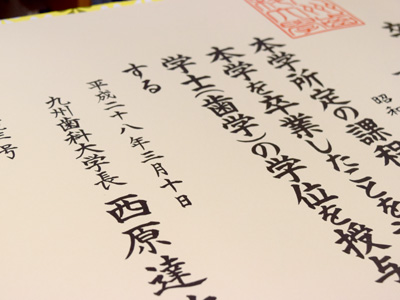 昭和
本学所定の課程を
本学を卒業したことを
学士(歯学)の学位を授与
する
平成二十八年三月十日
九州歯科大学長 西原達
号